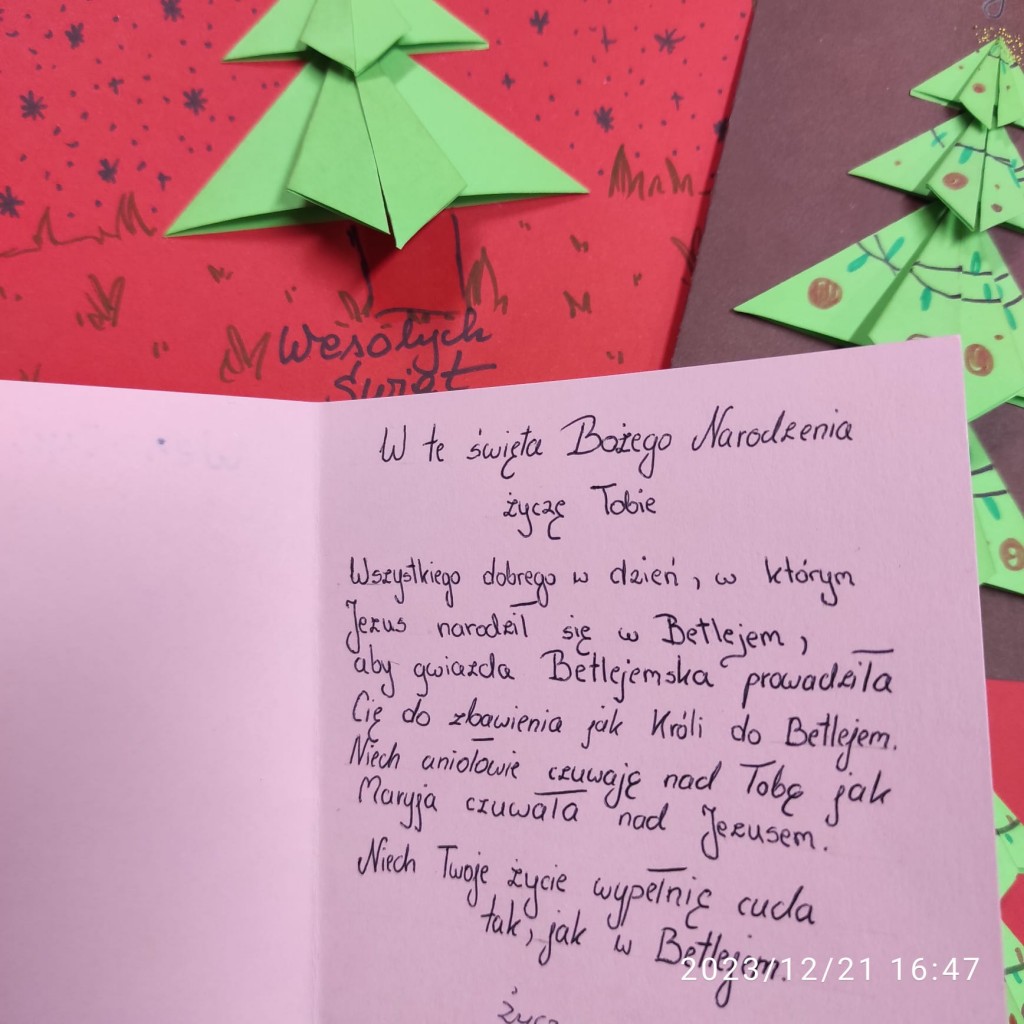 Wesołych
Świąt
W te święta Bożego Narodzenia
życzę Tobie
Wszystkiego dobrego w dzień, w którym
Jezus narodził się w Betlejem,
aby gwiazda Betlejemska prowadziła
Cię do zbawienia jak Króli do Betlejem.
Niech aniołowie czuwaję nad Tobę jak
Maryja czuwała nad Jezusem.
Niech Twoje życie wypełnię cuda
tak, jak w Betlejem.
2023/12/21 16:47